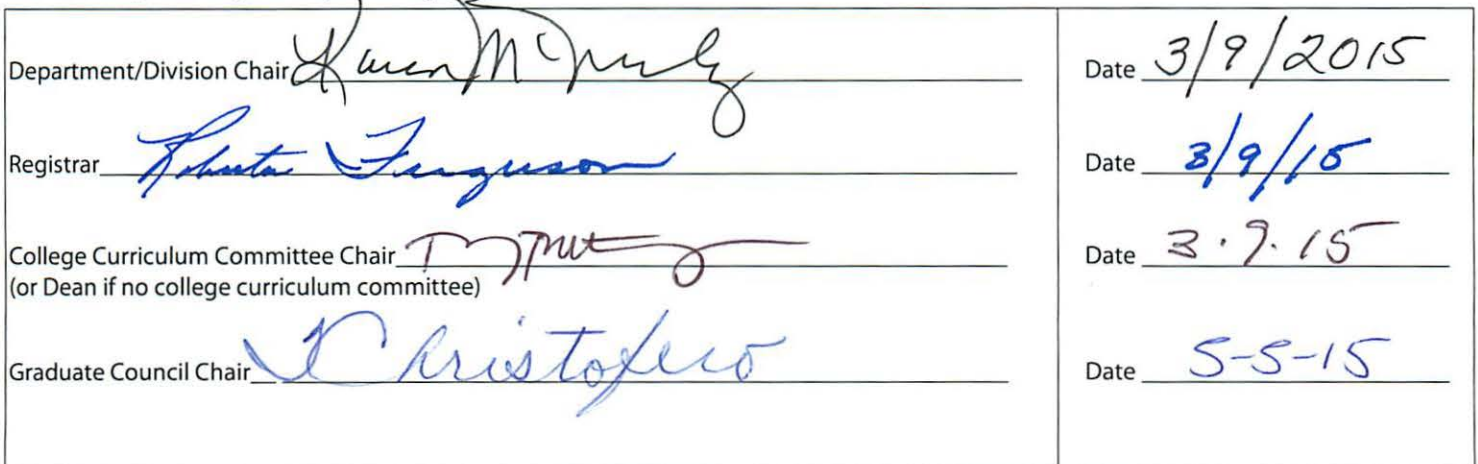 Department/Division Chair Karen McNealy Date 3/9/2015
Registrar Roberta Ferguson Date 3/9/15
College Curriculum Committee Chair Date 3.9.15
(or Dean if no college curriculum committee)
Graduate Council Chair Christofero Date 5-5-15